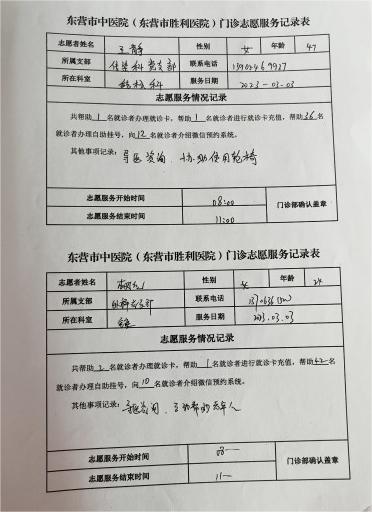 东营市中医院（东营市胜利医院）门诊志愿服务记录表
志愿者姓名 王静 性别 女 年龄 47
所属支部 党支部 联系电话
所在科室 科 服务日期 2023-03-03
志愿服务情况记录
共帮助 1 名就诊者办理就诊卡，帮助 1 名就诊者进行就诊卡充值，帮助 36 名
就诊者办理自助挂号，向 12 名就诊者介绍微信预约系统。
其他事项记录：导医咨询、协助使用轮椅
志愿服务开始时间 08:00 门诊部确认盖章
志愿服务结束时间 11:00
东营市中医院（东营市胜利医院）门诊志愿服务记录表
志愿者姓名 性别 女 年龄 24
所属支部 联系电话
所在科室 服务日期 2023.03.03
志愿服务情况记录
共帮助 2 名就诊者办理就诊卡，帮助 1 名就诊者进行就诊卡充值，帮助 42 名
就诊者办理自助挂号，向 10 名就诊者介绍微信预约系统。
其他事项记录：
志愿服务开始时间 门诊部确认盖章
志愿服务结束时间